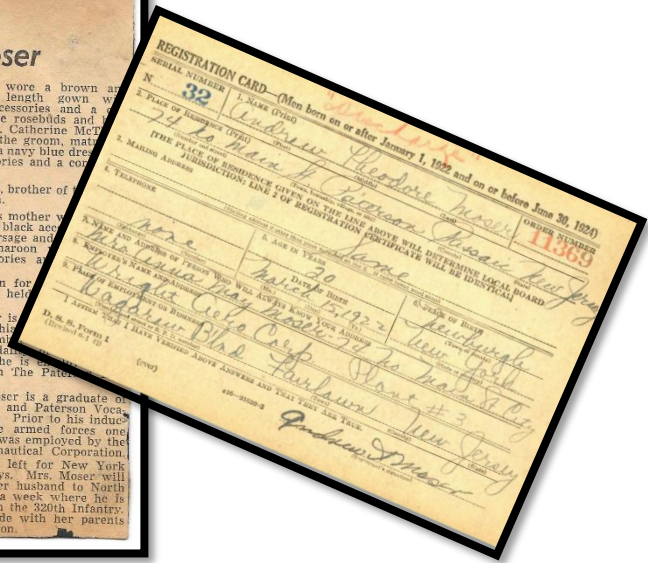 oser
wore a brown
length gown
cessories and a
e rosebuds and
. Catherine McT
the groom, mat
a navy blue dres
ories and a cor
, brother of
s mother
black acc
rsage and
maroon
ories a
n for
held
r is
he is
n The Pater
oser is a graduate of
and Paterson Voca-
Prior to his induc-
e armed forces one
was employed by the
nautical Corporation.
left for New York
ys. Mrs. Moser will
er husband to North
a week where he is
n the 320th Infantry.
de with her parents
on.
REGISTRATION CARD—(Men born on or after January 1, 1922 and on or before June 30, 1924)
SERIAL NUMBER
1. NAME (Print)
ORDER NUMBER
N 32
Andrew Theodore Moser
11369
2. PLACE OF RESIDENCE (Print)
74 No Main St Paterson Passaic New Jersey
[THE PLACE OF RESIDENCE GIVEN ON THE LINE ABOVE WILL DETERMINE LOCAL BOARD
JURISDICTION; LINE 2 OF REGISTRATION CERTIFICATE WILL BE IDENTICAL]
3. MAILING ADDRESS
Same
4. TELEPHONE
5. AGE IN YEARS
6. PLACE OF BIRTH
none
20
Newburgh
DATE OF BIRTH
March 15, 1922
New York
7. NAME AND ADDRESS OF PERSON WHO WILL ALWAYS KNOW YOUR ADDRESS
Mrs Anna May Moser - 74 No Main St
8. EMPLOYER'S NAME AND ADDRESS
Wright Aero Corp Plant #2
9. PLACE OF EMPLOYMENT OR BUSINESS
Blvd Fairlawn New Jersey
I AFFIRM THAT I HAVE VERIFIED ABOVE ANSWERS AND THAT THEY ARE TRUE.
D. S. S. Form 1
(over)
Andrew T Moser